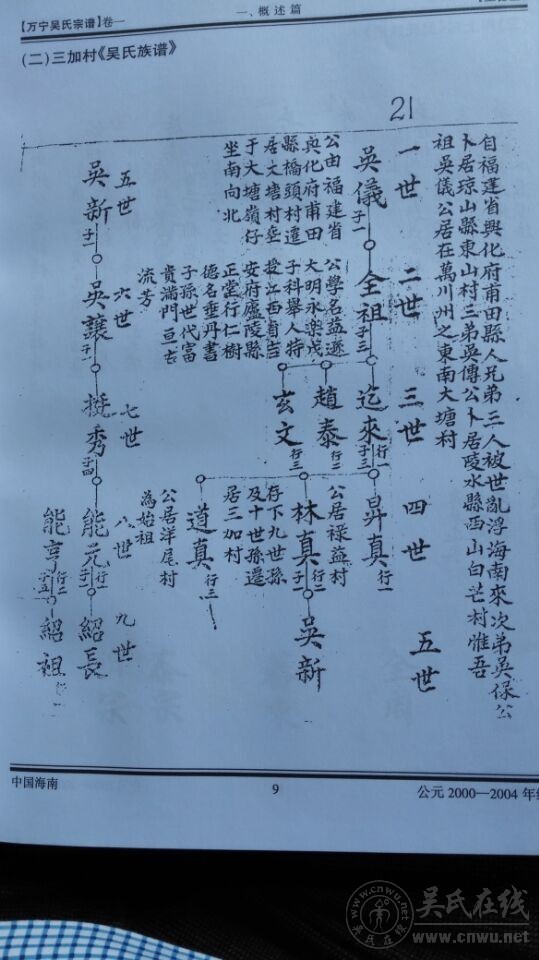 【万宁吴氏宗谱】卷一
一、概述篇
(二)三加村《吴氏族谱》
21
自福蓮省興化府甫田縣人兄弟三人被世亂浮海南來次弟吳保公
卜居琼山縣東山村三弟吳傳公卜居陵水縣西山白芒村惟吾
祖吳儀公居在萬川州之東南大塘村
一世
二世
三世
四世
五世
吳儀 子一
全祖 子三
迄來 行一 子三
昇真 行一
公由福建省
興化府甫田
縣橋頭村遷
居文塘村塟
于大塘嶺仔
坐南向北
公學名益遜
大明永樂戊
子科舉人特
授江西省吉
安府廬陵縣
正堂行仁樹
德名垂丹書
子孫世代富
貴滿門亘古
流芳
趙泰 行二
玄文 行三
公居禄益村
林真 行二 子一
吳新
存下九世孫
及十世孫遷
居三加村
道真 行三
公居洋尾村
為始祖
五世
六世
七世
八世
九世
吳新 子一
吳讓 子一
挺秀 子四
能元 行一 子一
紹長
能亨 行二 子五
紹祖
中国海南
9
公元 2000—2004 年
吴氏在线
www.cnwu.net